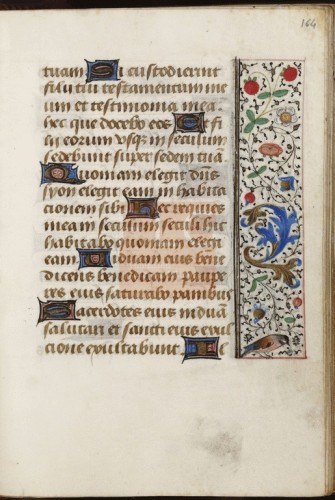 164
tuam Si custodierint
filii tui testamentum me
um et testimonia mea
hec que docebo eos Et fi
lij eorum usq3 in seculum
sedebunt super sedem tuā
Quoniam elegit dns
syon elegit eam in habita
cionem sibi Hec requies
mea in seculum seculi hic
habitabo quoniam elegi
eam Viduam eius bene
dicens benedicam paupe
res eius saturabo panibus
Sacerdotes eius induā
salutari et sancti eius exul
tacione exultabunt Il